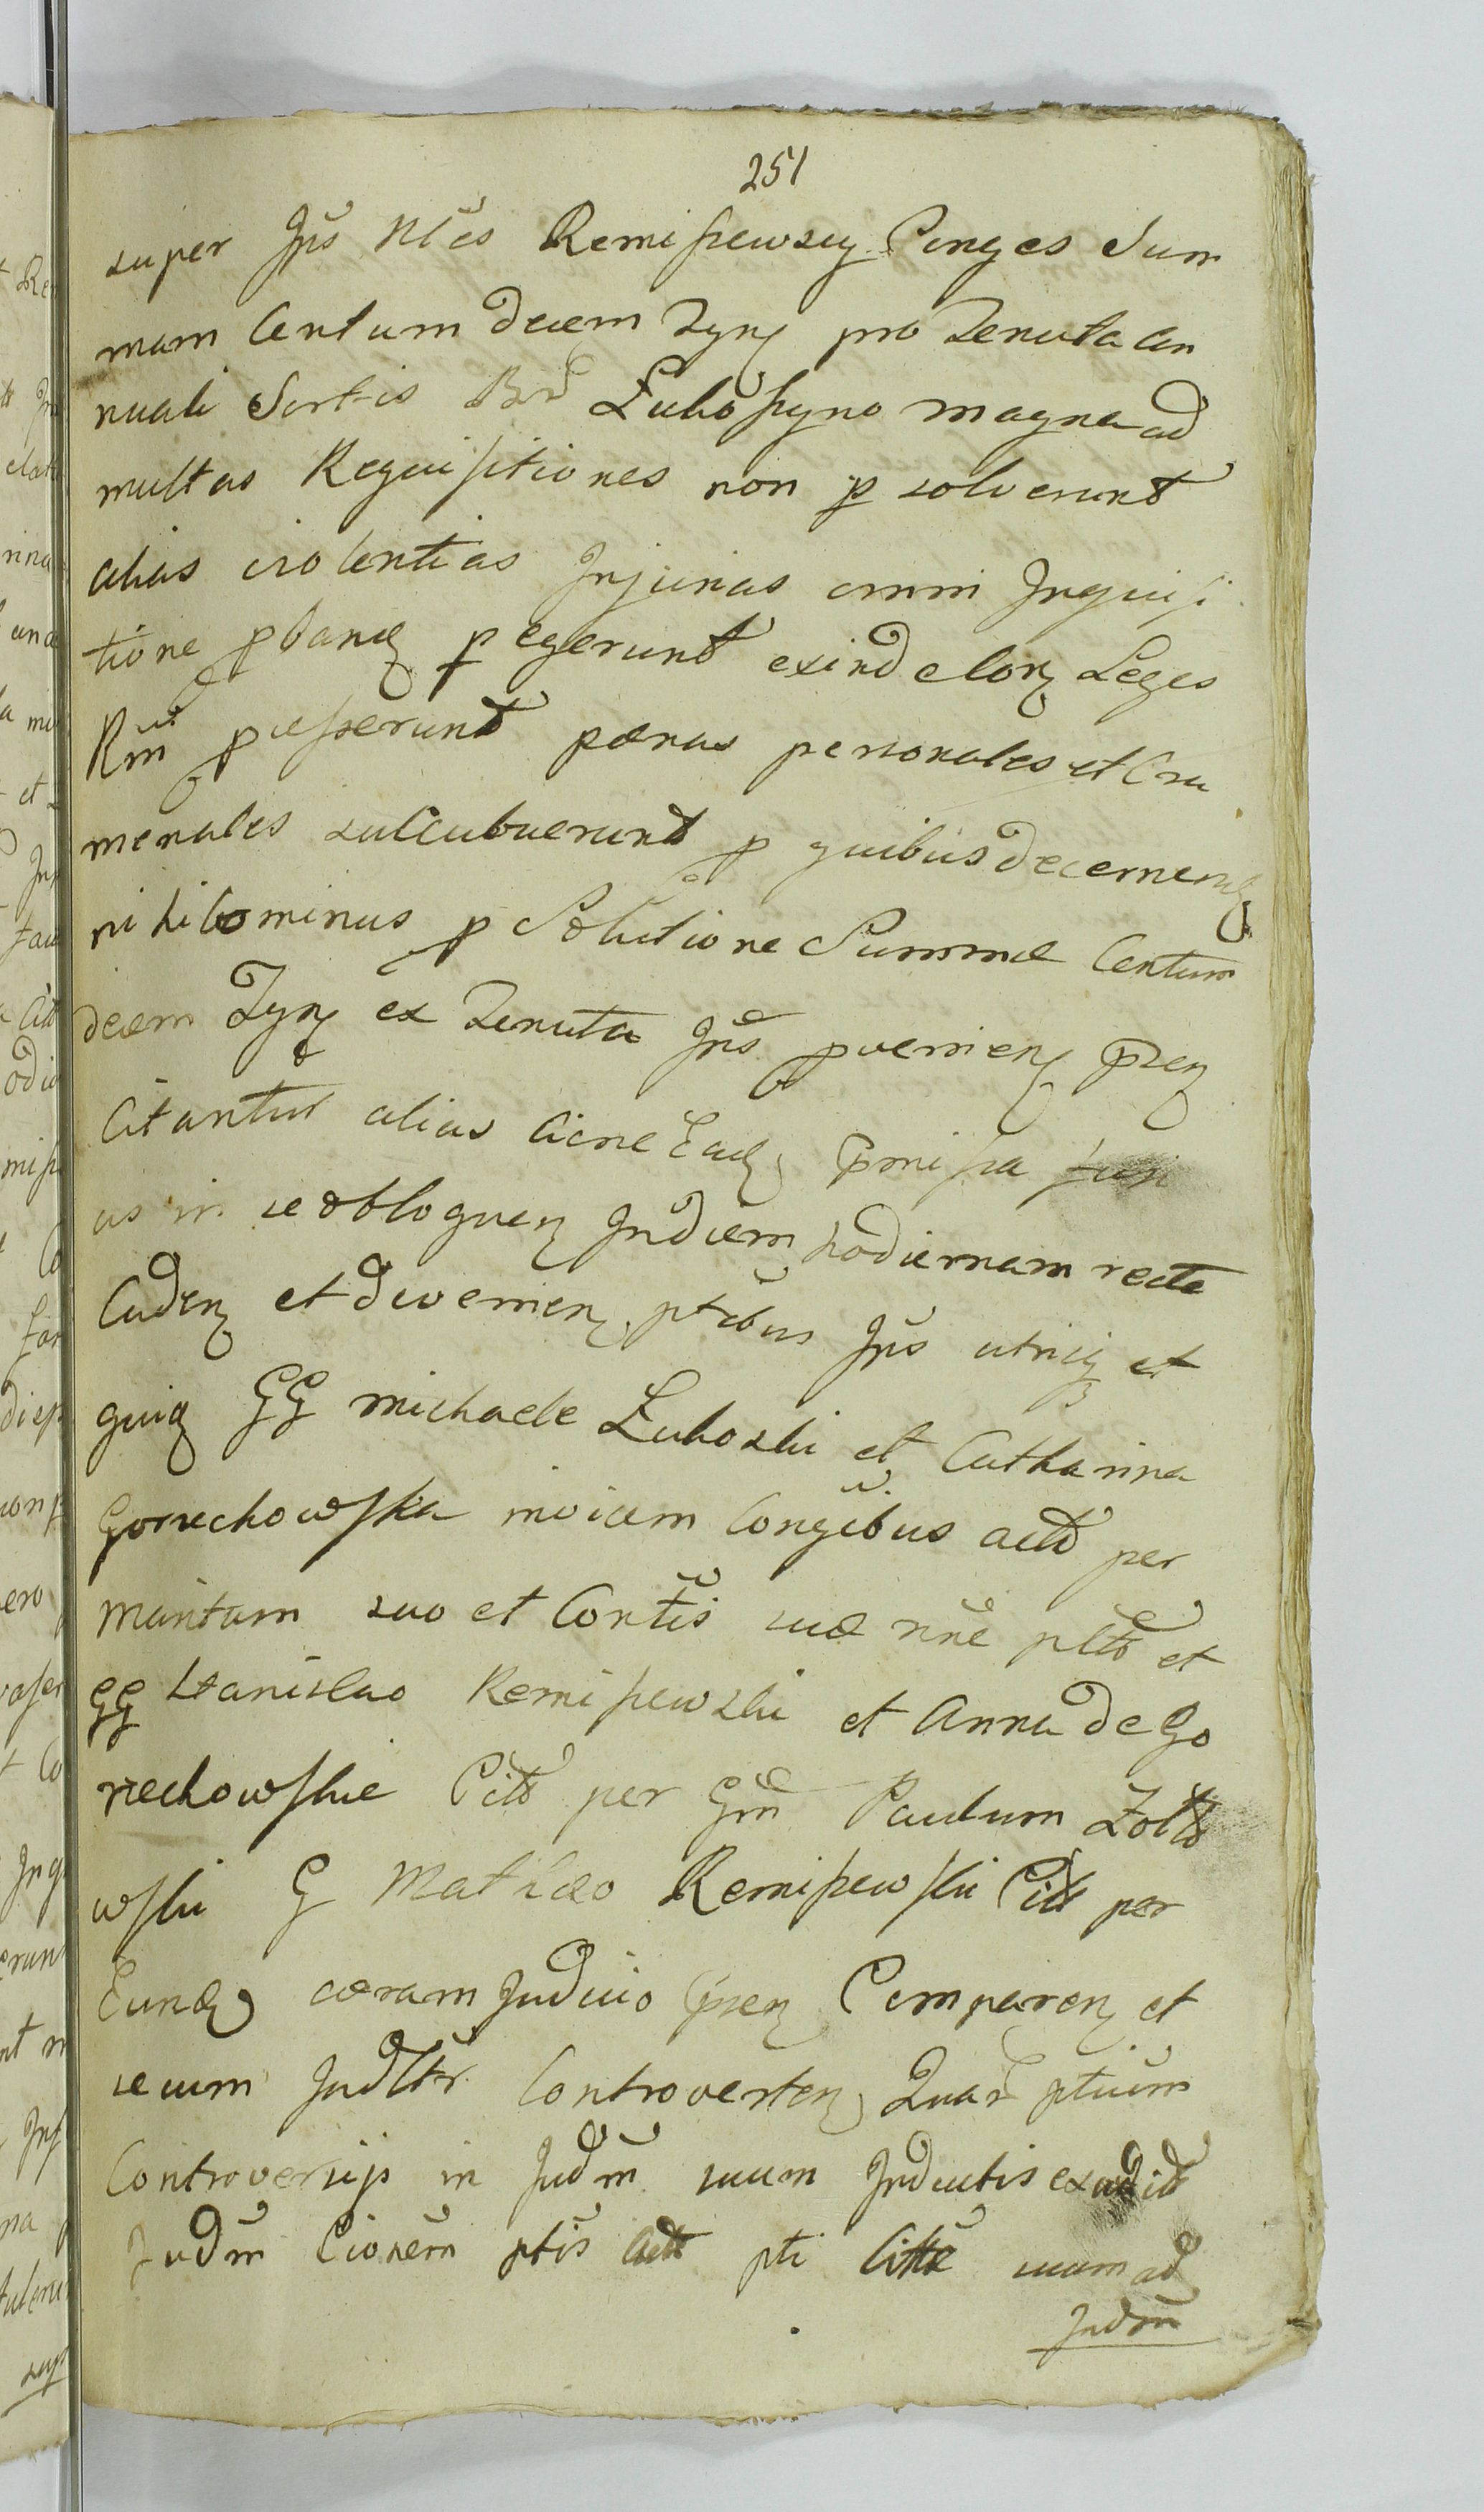 251
super Jpŝ Nl̃es Remiszewscy Conges Sum
mam Centum decem Tynf pro Tenuta an
nuali Sortis Bnr̃ Luboszyno magna ad
multas Requisitiones non p solverunt
alias violentias Injurias omni Inquisi
tione pband p egerunt exind elong Leges
Rm̃ p cesserunt pænas personales et Cru
menales succubuerunt p quibus decernend
nihilominus p Solutione Summæ Centum
decem Tynf ex Tenuta Jpŝ pvenien p̃sen
Citantur alias Cicne Ead p̃missa fusi
us in se obloquen In diem hodiernam recte
Caden et devenien ptibus Jpŝ utriq et
quid GG Michaele Luboski et Catharina
Gorzechowska invicem Congĩbus actõ per
maritum suo et Contĩs suæ nñe pltõ et
GG Stanislao Remiszewski et Anna de Go
rzechowskie Citõ per Gm̃ Paulum Zoltõ
wski G Mathæo Remiszewski Citõ per
Eund coram Judicio p̃sen Comparen et
secum Judltr̃ Controverten, Quar̃ ptium̃
Controversijs in Judm̃ suum Inductis exaudit
Judm̃ Cionem̃ ptĩs Actõ pti Cittæ suum ad
Judm̃